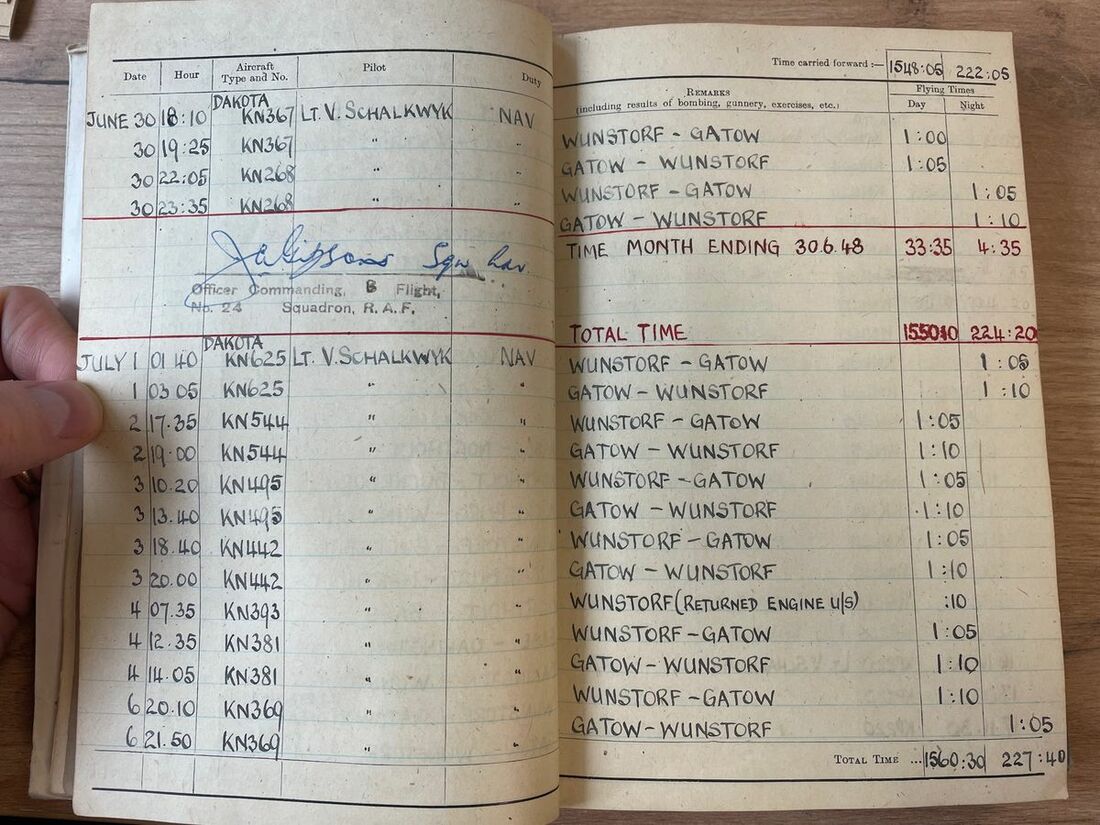 Time carried forward :— 1548:05 222:05
Date Hour Aircraft Type and No. Pilot Duty REMARKS (including results of bombing, gunnery, exercises, etc.) Flying Times Day Night
DAKOTA
JUNE 30 18:10 KN367 LT. V. SCHALKWYK NAV WUNSTORF - GATOW 1:00
30 19:25 KN367 " " GATOW - WUNSTORF 1:05
30 22:05 KN268 " " WUNSTORF - GATOW 1:05
30 23:35 KN268 " " GATOW - WUNSTORF 1:10
TIME MONTH ENDING 30.6.48 33:35 4:35
Sqn Ldr
Officer Commanding, B Flight,
No. 24 Squadron, R.A.F.
TOTAL TIME 155010 224:20
DAKOTA
JULY 1 01 40 KN625 LT. V. SCHALKWYK NAV WUNSTORF - GATOW 1:05
1 03 05 KN625 " " GATOW - WUNSTORF 1:10
2 17.35 KN544 " " WUNSTORF - GATOW 1:05
2 19.00 KN544 " " GATOW - WUNSTORF 1:10
3 10.20 KN495 " " WUNSTORF - GATOW 1:05
3 13.40 KN495 " " GATOW - WUNSTORF 1:10
3 18.40 KN442 " " WUNSTORF - GATOW 1:05
3 20.00 KN442 " " GATOW - WUNSTORF 1:10
4 07.35 KN393 " " WUNSTORF (RETURNED ENGINE U/S) :10
4 12.35 KN381 " " WUNSTORF - GATOW 1:05
4 14.05 KN381 " " GATOW - WUNSTORF 1:10
6 20.10 KN369 " " WUNSTORF - GATOW 1:10
6 21.50 KN369 " " GATOW - WUNSTORF 1:05
TOTAL TIME ... 1560:30 227:40